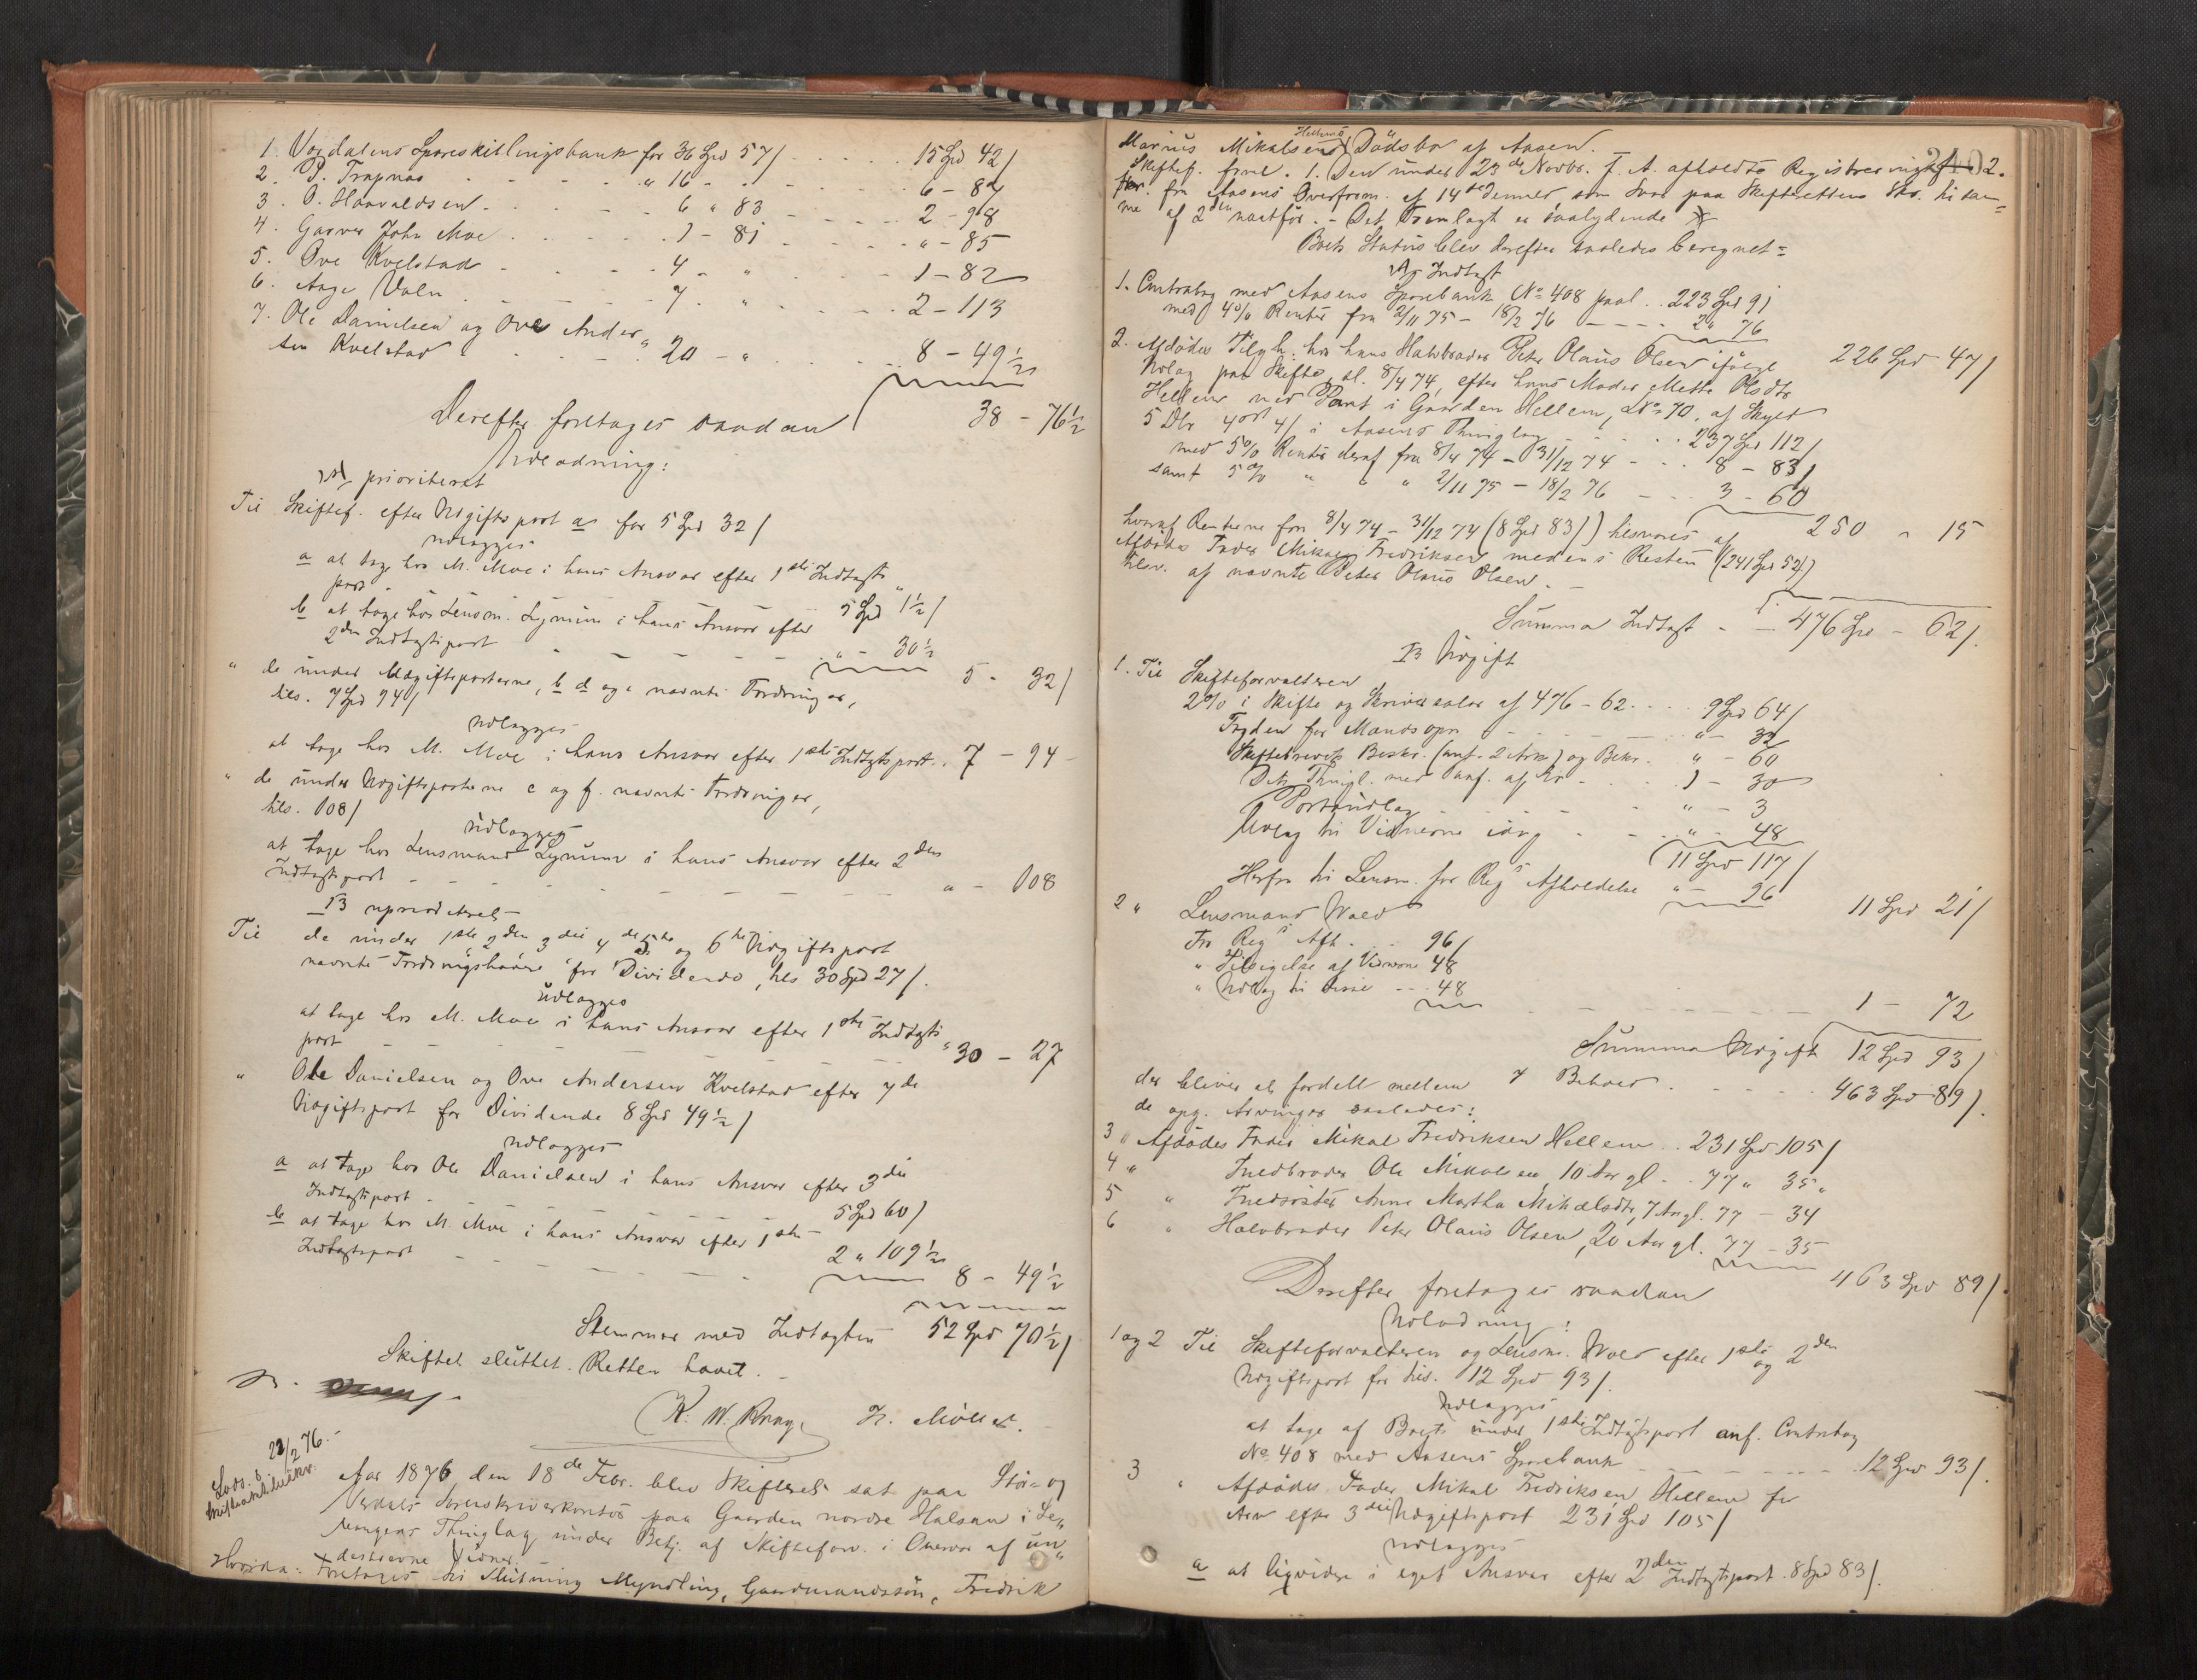 1. Værdalens Spareskillingsbank for 36 Spd 57/ . . . 15 Spd 42/
2. P. Trapnæs - - - " 16 - " - - - 6 - 84
3. O. Haavaldsen - - - 6 " 83 - - - 2 - 98
4. Garver John Moe - - - 1 - 81 - - - " - 85
5. Ove Kvelstad - - - 4 - " - - - 1 - 82
6. Aage Valn - - - 7 - " - - - 2 - 113
7. Ole Danielsen og Ove Ander-
sen Kvelstad - - " 20 - " - - - 8 - 49½
38 - 76½
Derefter foretages saadan
Udlodning:
A, prioriteret
Til Skiftef. efter Udgiftspost a for 5 Spd 32/
udlægges
a at tage hos M. Moe i hans Ansvar efter 1ste Indtægts
post - - - 5 Spd 1½/
b at tage hos Lensm. Lynum i hans Ansvar efter
2den Indtægtspost - - - " - 30½
5 - 32/
" de under Udgiftsposterne, b d og e nævnte Fordringer,
tils. 7 Spd 94/
udlægges
at tage hos M. Moe i hans Ansvar efter 1ste Indtægtspost . 7 - 94
" de under Udgiftsposterne c og f. nævnte Fordringer,
tils. 108/
udlægges
at tage hos Lensmand Lynum i hans Ansvar efter 2den
Indtægtspost - - - " - 108
B uprioriteret
Til de under 1ste 2den 3die 4de 5te og 6te Udgiftspost
nævnte Fordringshavere for Dividende, tils 30 Spd 27/.
udlægges
at tage hos M. Moe i hans Ansvar efter 1ste Indtægts
post - - - 30 - 27
" Ole Danielsen og Ove Andersen Kvelstad efter 7de
Udgiftspost for Dividende 8 Spd 49½/
udlægges
a at tage hos Ole Danielsen i hans Ansvar efter 3die
Indtægtspost - 5 Spd 60/
b at tage hos M. Moe i hans Ansvar efter 1ste
Indtægtspost - - - 2 " 109½
8 - 49½
Stemmer med Indtægten 52 Spd 70½/
Skiftet sluttet. Retten hævet. -
K. W. H. Møller.
22/2 76.
Aar 1876 den 18de Febr. blev Skifteret sat paa Stør- og
Værdals Sorenskriverkontor paa Gaarden nordre Halsan i Le-
vangers Thinglag under Betj. af Skifteforv. i Overvær af un-
derskrevne Vidner. -
Hvorda: Foretages til Slutning Myndling, Gaardmandssøn, Fredrik
Marius Mikalsens Hellems Dødsbo af Aasen. -
Skiftef. freml. 1. Den under 23de Novbr. f. A. afholdte Registrering 2.
fra Aasens Overform. af 14de dennes, som Svar paa Skifterettens Skr. til sam-
me af 2den næstfør. - Det Fremlagte er saalydende
Boets Status blev derefter saaledes beregnet:
A, Indtægt
1. Contrabog med Aasens Sparebank No 408 paal. . 223 Spd 91
med 4% Renter fra 2/11 75 - 18/2 76 - - - 2 " 76
226 Spd 47/
2. Afdødes Tilgh. hos hans Halvbroder Peter Olaus Olsen ifølge
Udlæg paa Skifte, sl. 8/4 74, efter hans Moder Mette Olsdtr
Hellem med Pant i Gaarden Hellem, LNo 70, af Skyld
5 Dlr 4 ort 4/ i Aasens Thinglag - - - 237 Spd 112/
med 5% Renter deraf fra 8/4 74 - 31/12 74 - - 8 - 83/
samt 5% " " " 2/11 75 - 18/2 76 - - 3 - 60
250 " 15
hvoraf Renterne fra 8/4 74 - 31/12 74 (8 Spd 83/) hæves af
Afdødes Fader Mikal Fredriksen medens Resten (241 Spd 52/)
af nævnte Peter Olaus Olsen. -
Summa Indtægt - - 476 Spd - 62/.
B Udgift
1. Til Skifteforvalteren
2% i Skifte og Skriversalær af 476 - 62 . . . 9 Spd 64/
" - 32
Skiftebrevets Beskr. (anf. 2 Ark) og Bekr. " - 60
Dets Thingl. med anf. af 1 - 30
Portoudlæg - - - " - 3
Udlæg til Vidnerne idag - - " - 48
11 Spd 117/
Herfra til Lensm. for Reg.s Afholdelse " - 96
11 Spd 21/
2 " Lensmand Wold
For Reg.s Afh. . . . 96/
" Tilsigelse af Vidnerne 48
" Udlæg til disse - - - 48
1 - 72
Summa Udgift 12 Spd 93/
der bliver at fordele mellem Behold - - - 463 Spd 89/.
de opg. Arvinger saaledes:
3 " Afdødes Fader Mikal Fredriksen Hellem . . 231 Spd 105/
4 " Fuldbroder Ole Mikalsen, 10 Aar gl. . 77 " 35 "
5 " Fuldsøster Anne Martha Mikalsdtr, 7 Aar gl. 77 - 34
6 " Halvbroder Peter Olaus Olsen, 20 Aar gl. 77 - 35
463 Spd 89/.
Derefter foretages saadan
Udlodning:
1 og 2 Til Skifteforvalteren og Lensm. Wold efter 1ste og 2den
Udgiftspost for tils. 12 Spd 93/.
udlægges
at tage af Boets under 1ste Indtægtspost anf. Contrabog
No 408 med Aasens Sparebank - - - 12 Spd 93/.
3 " Afdødes Fader Mikal Fredriksen Hellem for
Arv efter 3die Udgiftspost 231 Spd 105/
udlægges
a at liqvidere i eget Ansvar efter 2den Indtægtspost . 8 Spd 83/.